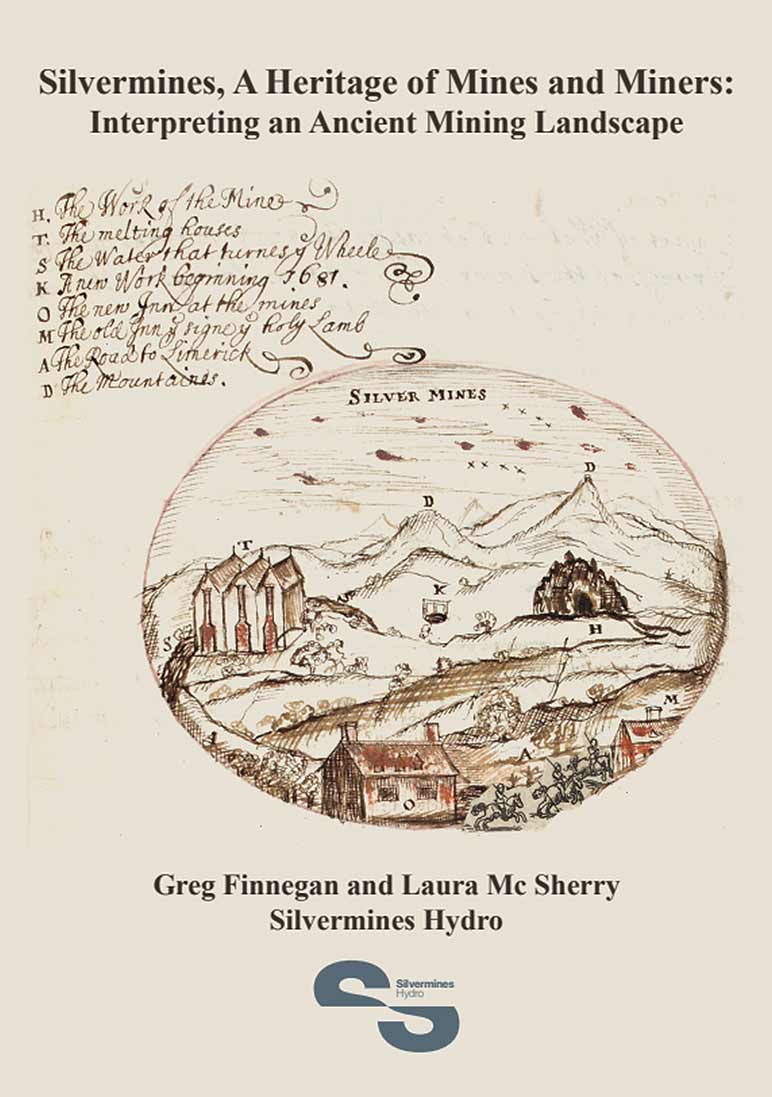 Silvermines, A Heritage of Mines and Miners:
Interpreting an Ancient Mining Landscape
H. The Work of the Mine
T. The melting houses
S The Water that turnes y Wheele
K A new Work beginning 1681.
O The new Inn at the mines
M The old Inn y signe y holy Lamb
A The Road to Limerick
D The Mountaines.
SILVER MINES
D
D
T
K
H
S
M
A
O
Greg Finnegan and Laura Mc Sherry
Silvermines Hydro
Silvermines
Hydro